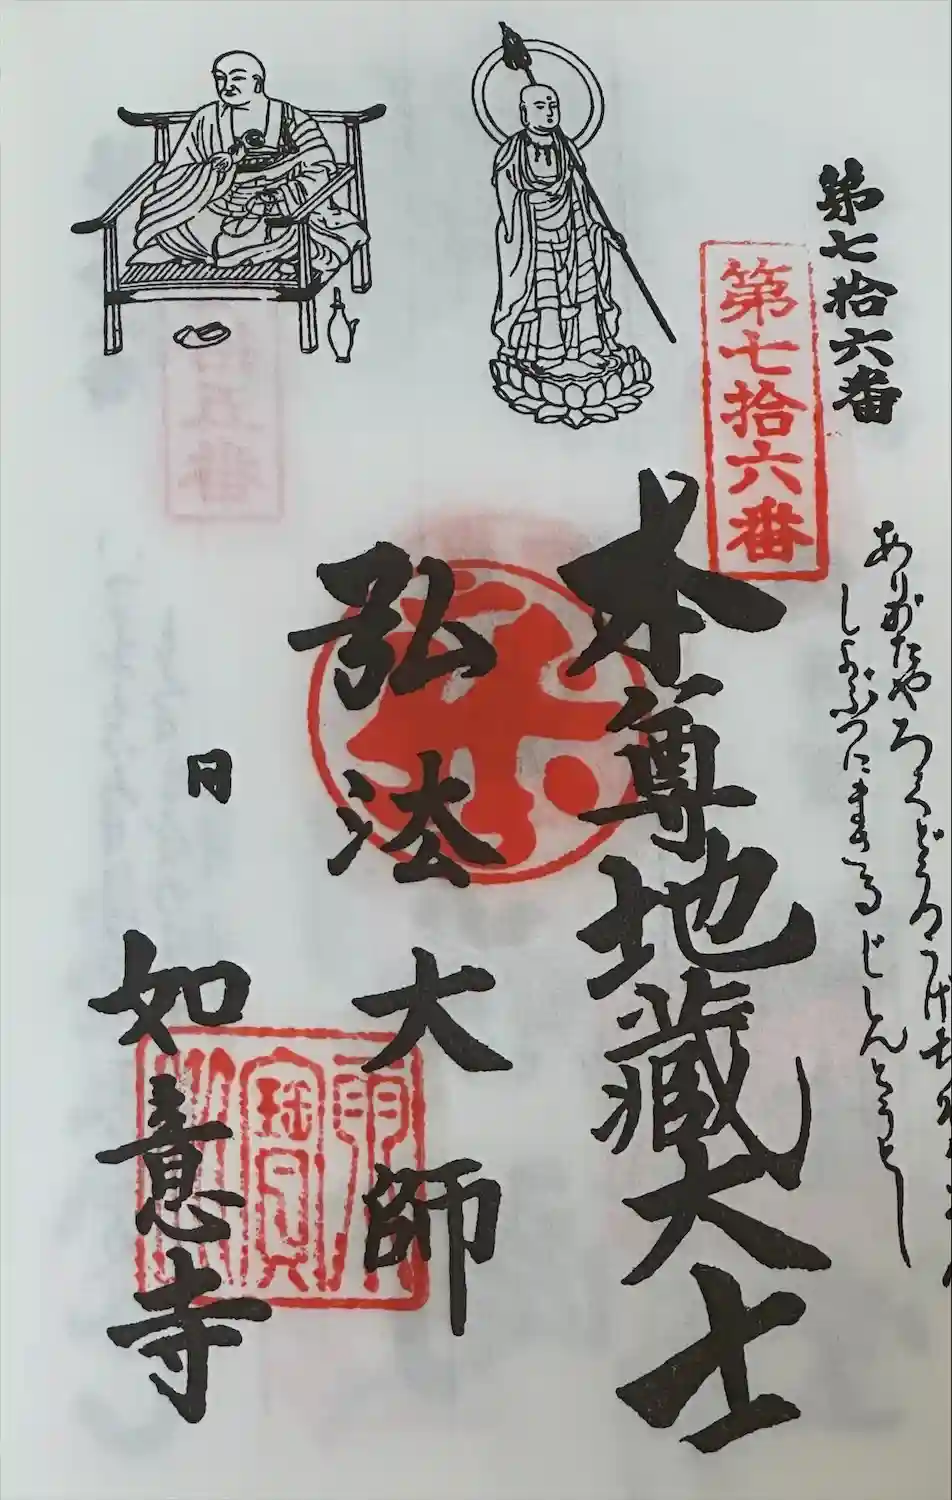 第七拾六番
ありがたや
しょぶつにまさるじしんとうとし
第七拾六番
本尊地蔵大士
弘法大師
日
如意寺